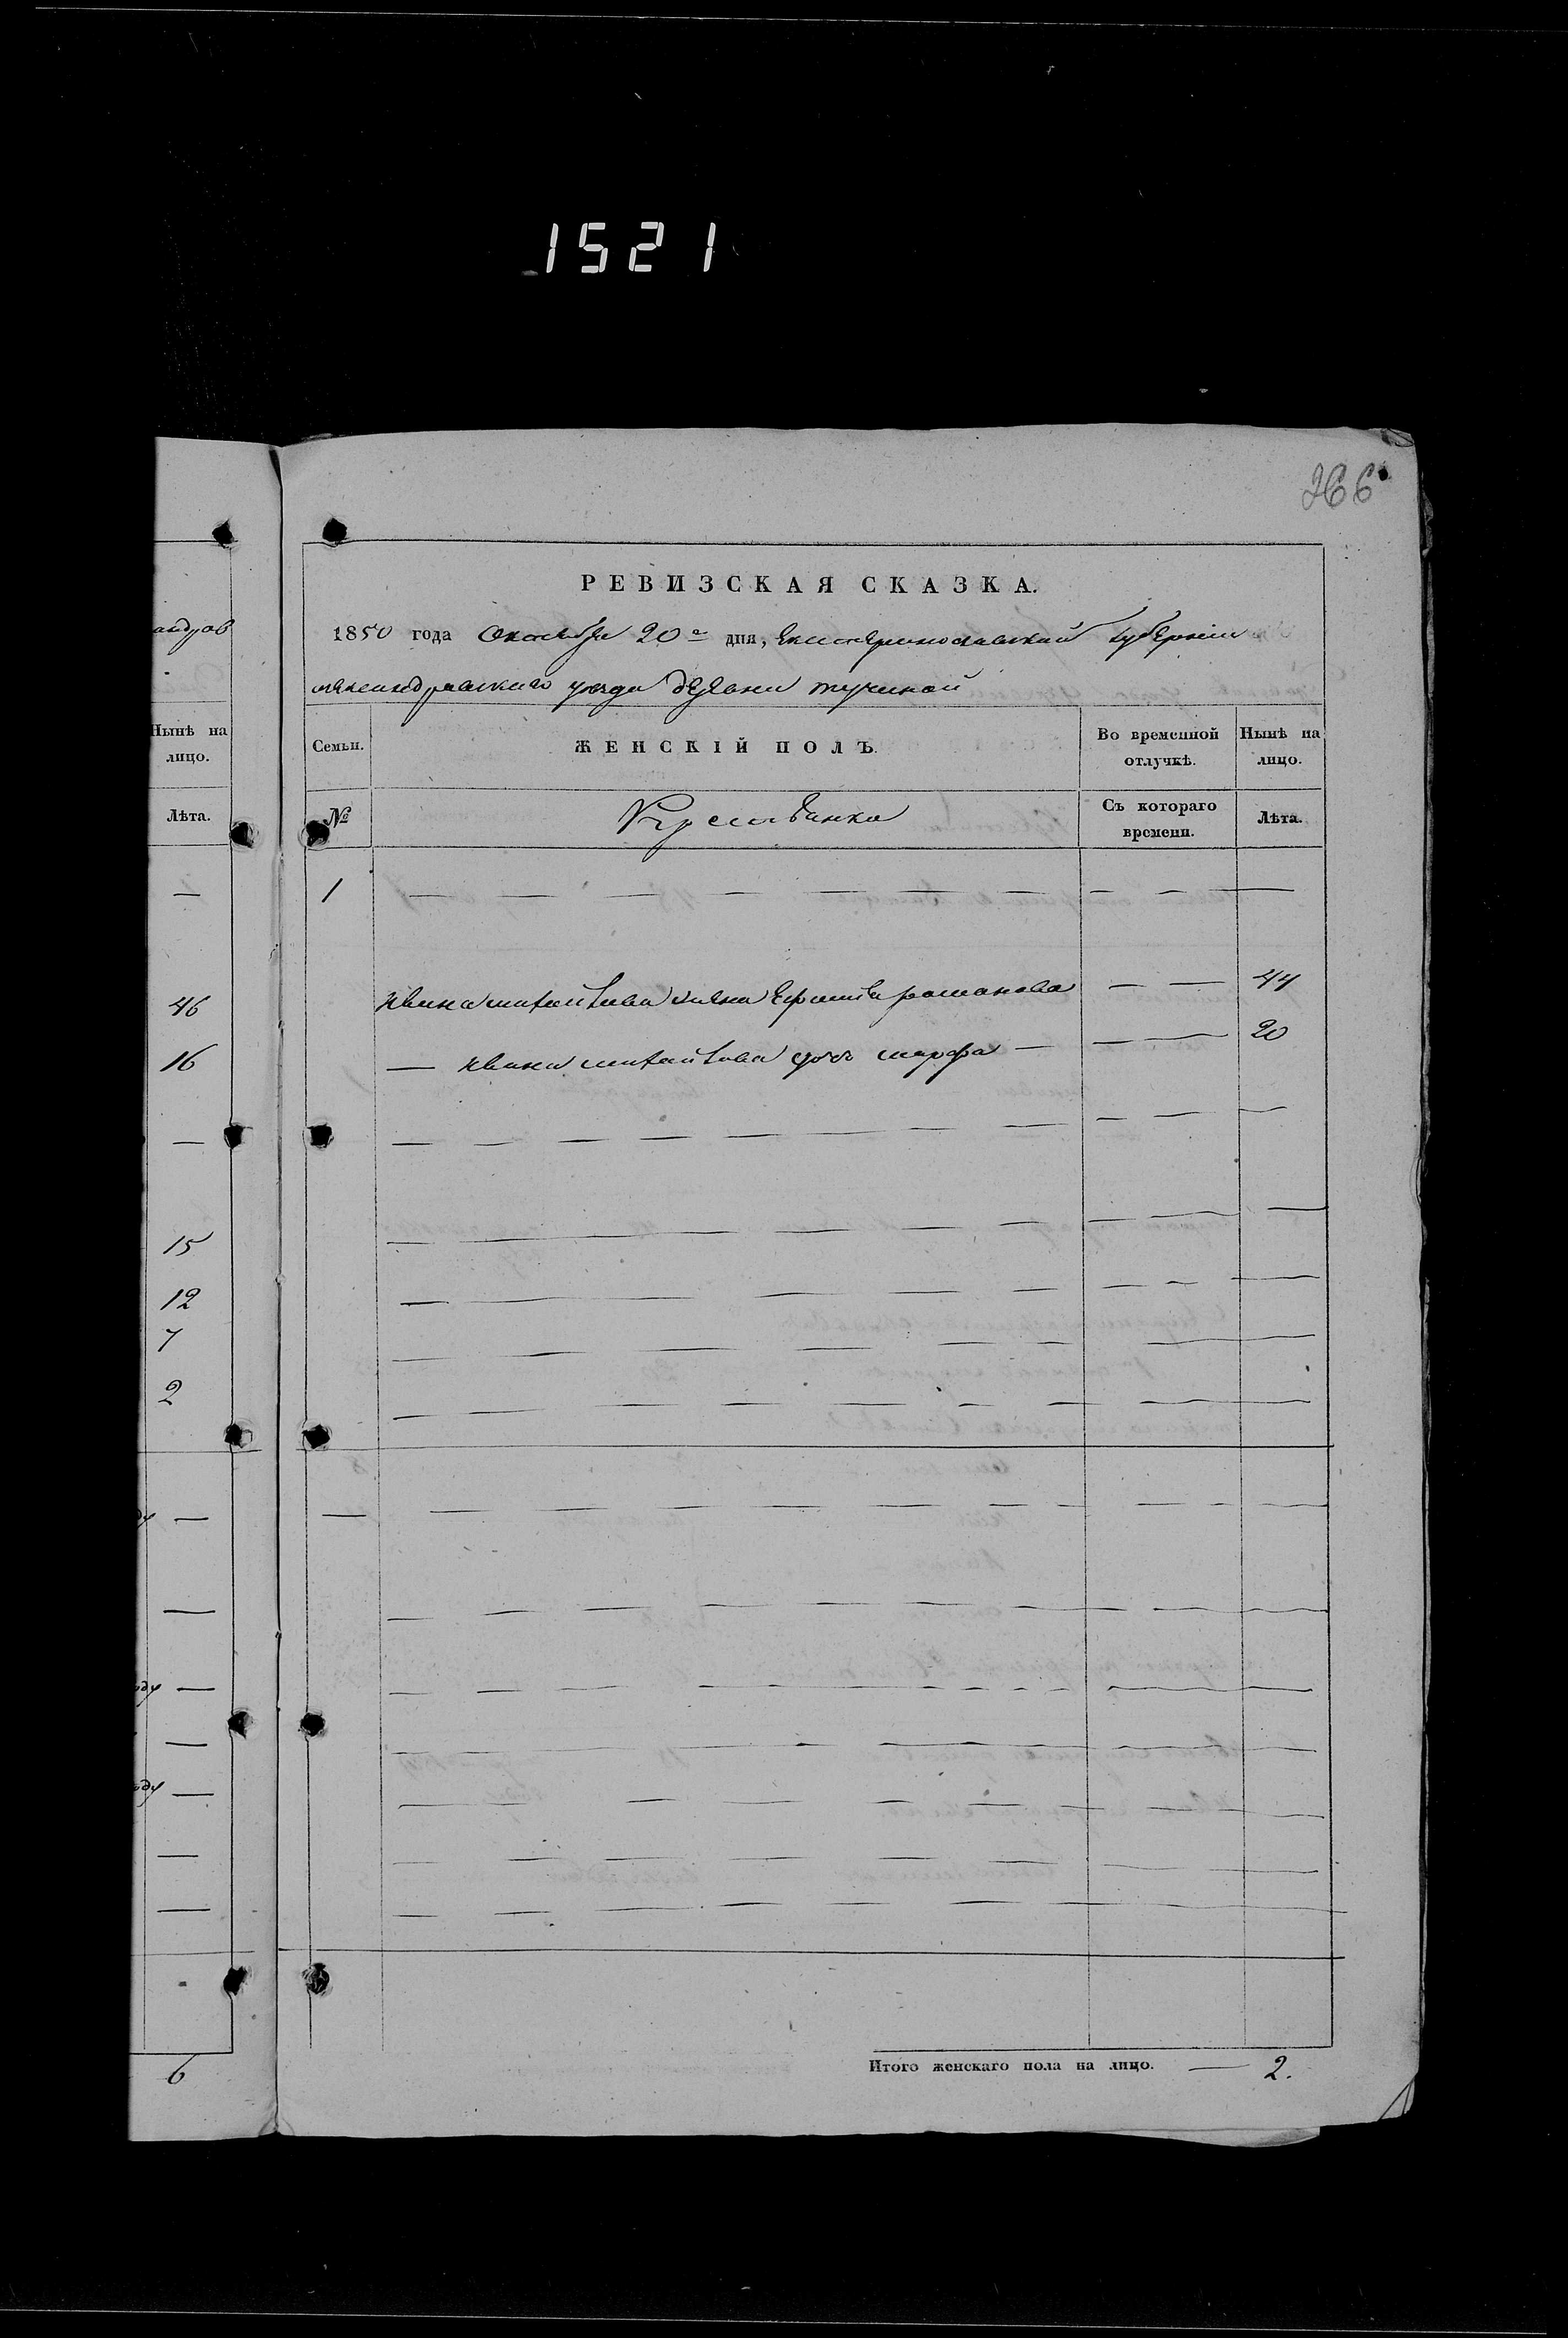 1521
266
андров
РЕВИЗСКАЯ СКАЗКА.
1850 года Октября 20го дня, Екатеринославской губернии
александравскаго уезда деревни
Нынѣ на лицо.
Лѣта.
Семьи.
ЖЕНСКІЙ ПОЛЪ.
Во временной отлучкѣ.
Нынѣ на лицо.
№
Съ котораго времени.
Лѣта.
—
1 — — — — — — — — — — — —
46
Ивана михайлова жена романова — — 44
16
— Ивана михайлова дочь марфа — — — 20
—
15
12
7
2
ду —
—
оду —
—
оду —
—
—
6
Итого женскаго пола на лицо. — 2.